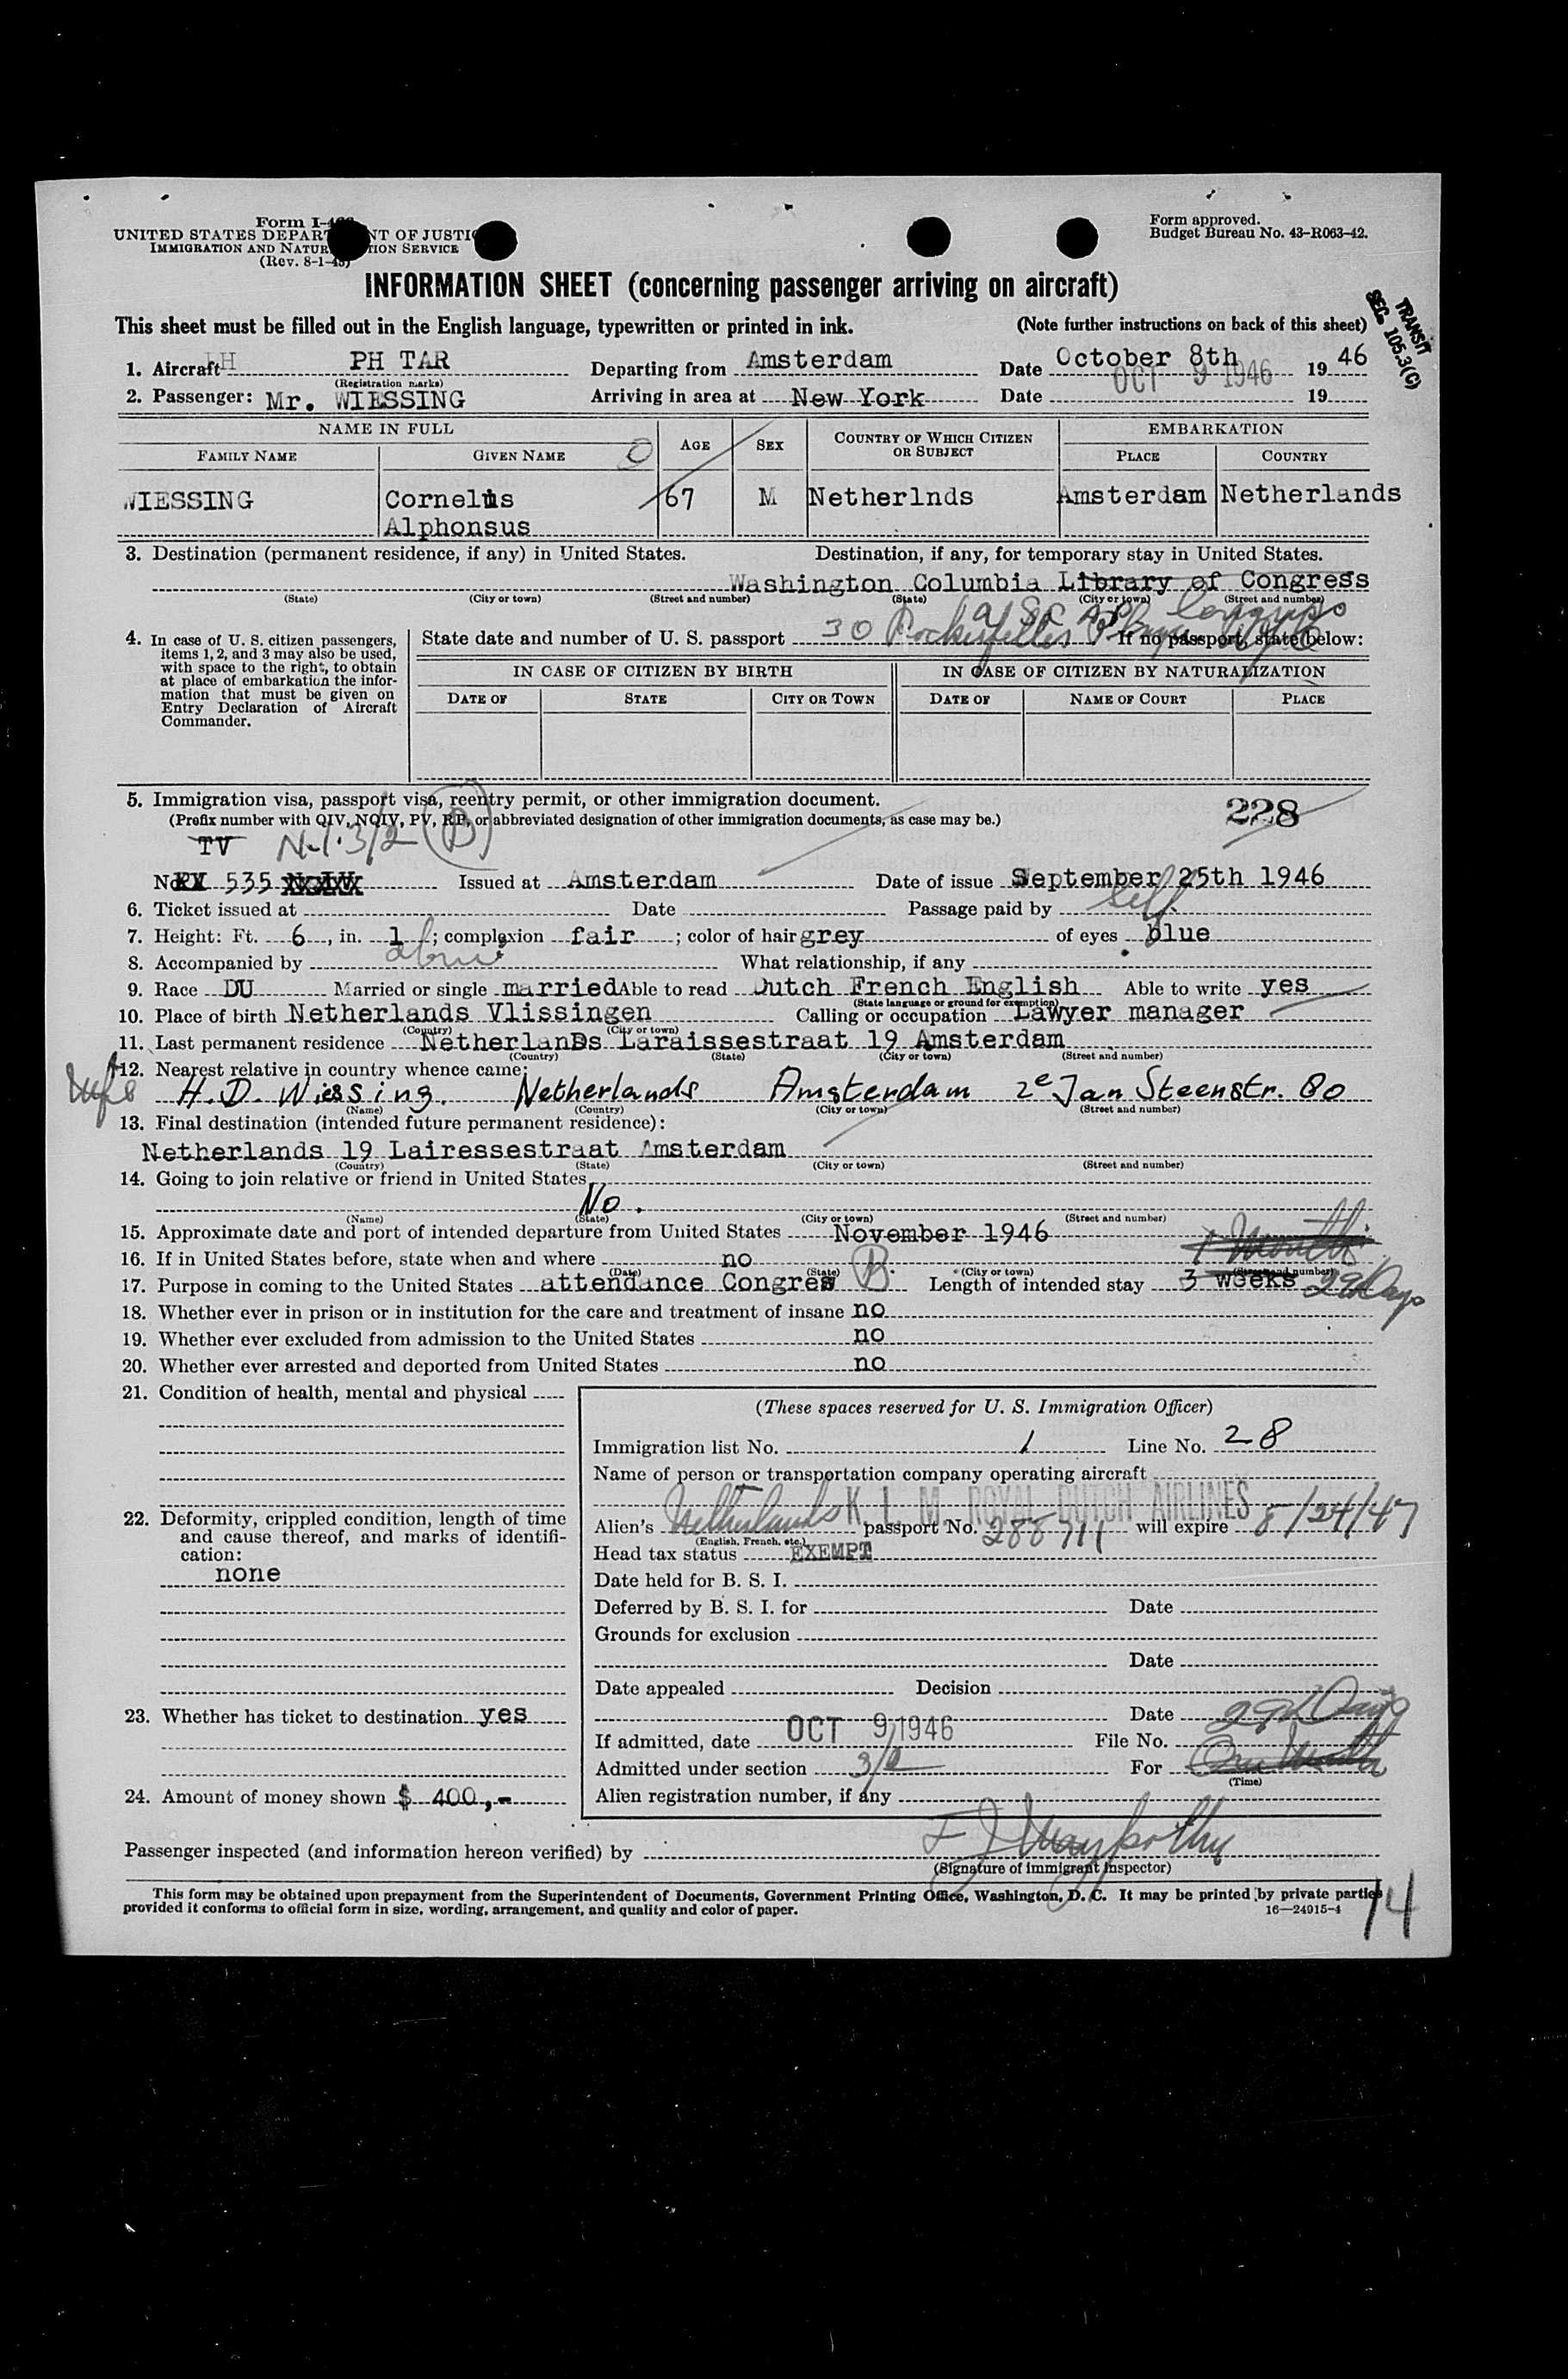 Form I-466
UNITED STATES DEPARTMENT OF JUSTICE
IMMIGRATION AND NATURALIZATION SERVICE
(Rev. 8-1-45)
Form approved.
Budget Bureau No. 43-R063-42.
INFORMATION SHEET (concerning passenger arriving on aircraft)
This sheet must be filled out in the English language, typewritten or printed in ink. (Note further instructions on back of this sheet)
TRANSIT
SEC. 105.3(C)
1. Aircraft PH TAR Departing from Amsterdam Date October 8th 19 46
(Registration marks)
OCT 9 1946
2. Passenger: Mr. WIESSING Arriving in area at New York Date 19
NAME IN FULL AGE SEX COUNTRY OF WHICH CITIZEN OR SUBJECT EMBARKATION
FAMILY NAME GIVEN NAME PLACE COUNTRY
WIESSING Cornelis 67 M Netherlnds Amsterdam Netherlands
Alphonsus
3. Destination (permanent residence, if any) in United States. Destination, if any, for temporary stay in United States.
Washington Columbia Library of Congress
(State) (City or town) (Street and number) (State) (City or town) (Street and number)
4. In case of U. S. citizen passengers, items 1, 2, and 3 may also be used, with space to the right, to obtain at place of embarkation the information that must be given on Entry Declaration of Aircraft Commander.
State date and number of U. S. passport 30 Rockefeller If no passport, state below:
IN CASE OF CITIZEN BY BIRTH IN CASE OF CITIZEN BY NATURALIZATION
DATE OF STATE CITY OR TOWN DATE OF NAME OF COURT PLACE
5. Immigration visa, passport visa, reentry permit, or other immigration document.
228
(Prefix number with QIV, NQIV, PV, RP, or abbreviated designation of other immigration documents, as case may be.)
TV N-1. 3/2 (B)
No. 535 Issued at Amsterdam Date of issue September 25th 1946
6. Ticket issued at Date Passage paid by self
7. Height: Ft. 6, in. 1; complexion fair; color of hair grey of eyes blue
8. Accompanied by alone What relationship, if any
9. Race DU Married or single married Able to read Dutch French English Able to write yes
(State language or ground for exemption)
10. Place of birth Netherlands Vlissingen Calling or occupation Lawyer manager
(Country) (City or town)
11. Last permanent residence NetherlanDs Laraissestraat 19 Amsterdam
(Country) (State) (City or town) (Street and number)
12. Nearest relative in country whence came:
Wife H. D. Wiessing. Netherlands Amsterdam 2e Jan Steenstr. 80
(Name) (Country) (City or town) (Street and number)
13. Final destination (intended future permanent residence):
Netherlands 19 Lairessestraat Amsterdam
(Country) (State) (City or town) (Street and number)
14. Going to join relative or friend in United States
No.
(Name) (State) (City or town) (Street and number)
15. Approximate date and port of intended departure from United States November 1946
1 Month
16. If in United States before, state when and where no
(Date) (State) (City or town) (Street and number)
17. Purpose in coming to the United States attendance Congres B. Length of intended stay 3 weeks 29 Days
18. Whether ever in prison or in institution for the care and treatment of insane no
19. Whether ever excluded from admission to the United States no
20. Whether ever arrested and deported from United States no
21. Condition of health, mental and physical
22. Deformity, crippled condition, length of time and cause thereof, and marks of identification:
none
23. Whether has ticket to destination yes
24. Amount of money shown $ 400,-
(These spaces reserved for U. S. Immigration Officer)
Immigration list No. 1 Line No. 28
Name of person or transportation company operating aircraft
K. L. M. ROYAL DUTCH AIRLINES
Alien's Netherlands passport No. 288711 will expire 8/24/47
(English, French, etc.)
Head tax status EXEMPT
Date held for B. S. I.
Deferred by B. S. I. for Date
Grounds for exclusion
Date
Date appealed Decision
Date 29 Days
If admitted, date OCT 9 1946 File No.
Admitted under section 3/2 For One Month
(Time)
Alien registration number, if any
Passenger inspected (and information hereon verified) by
(Signature of immigrant inspector)
This form may be obtained upon prepayment from the Superintendent of Documents, Government Printing Office, Washington, D. C. It may be printed by private parties
provided it conforms to official form in size, wording, arrangement, and quality and color of paper. 16—24915-4
14